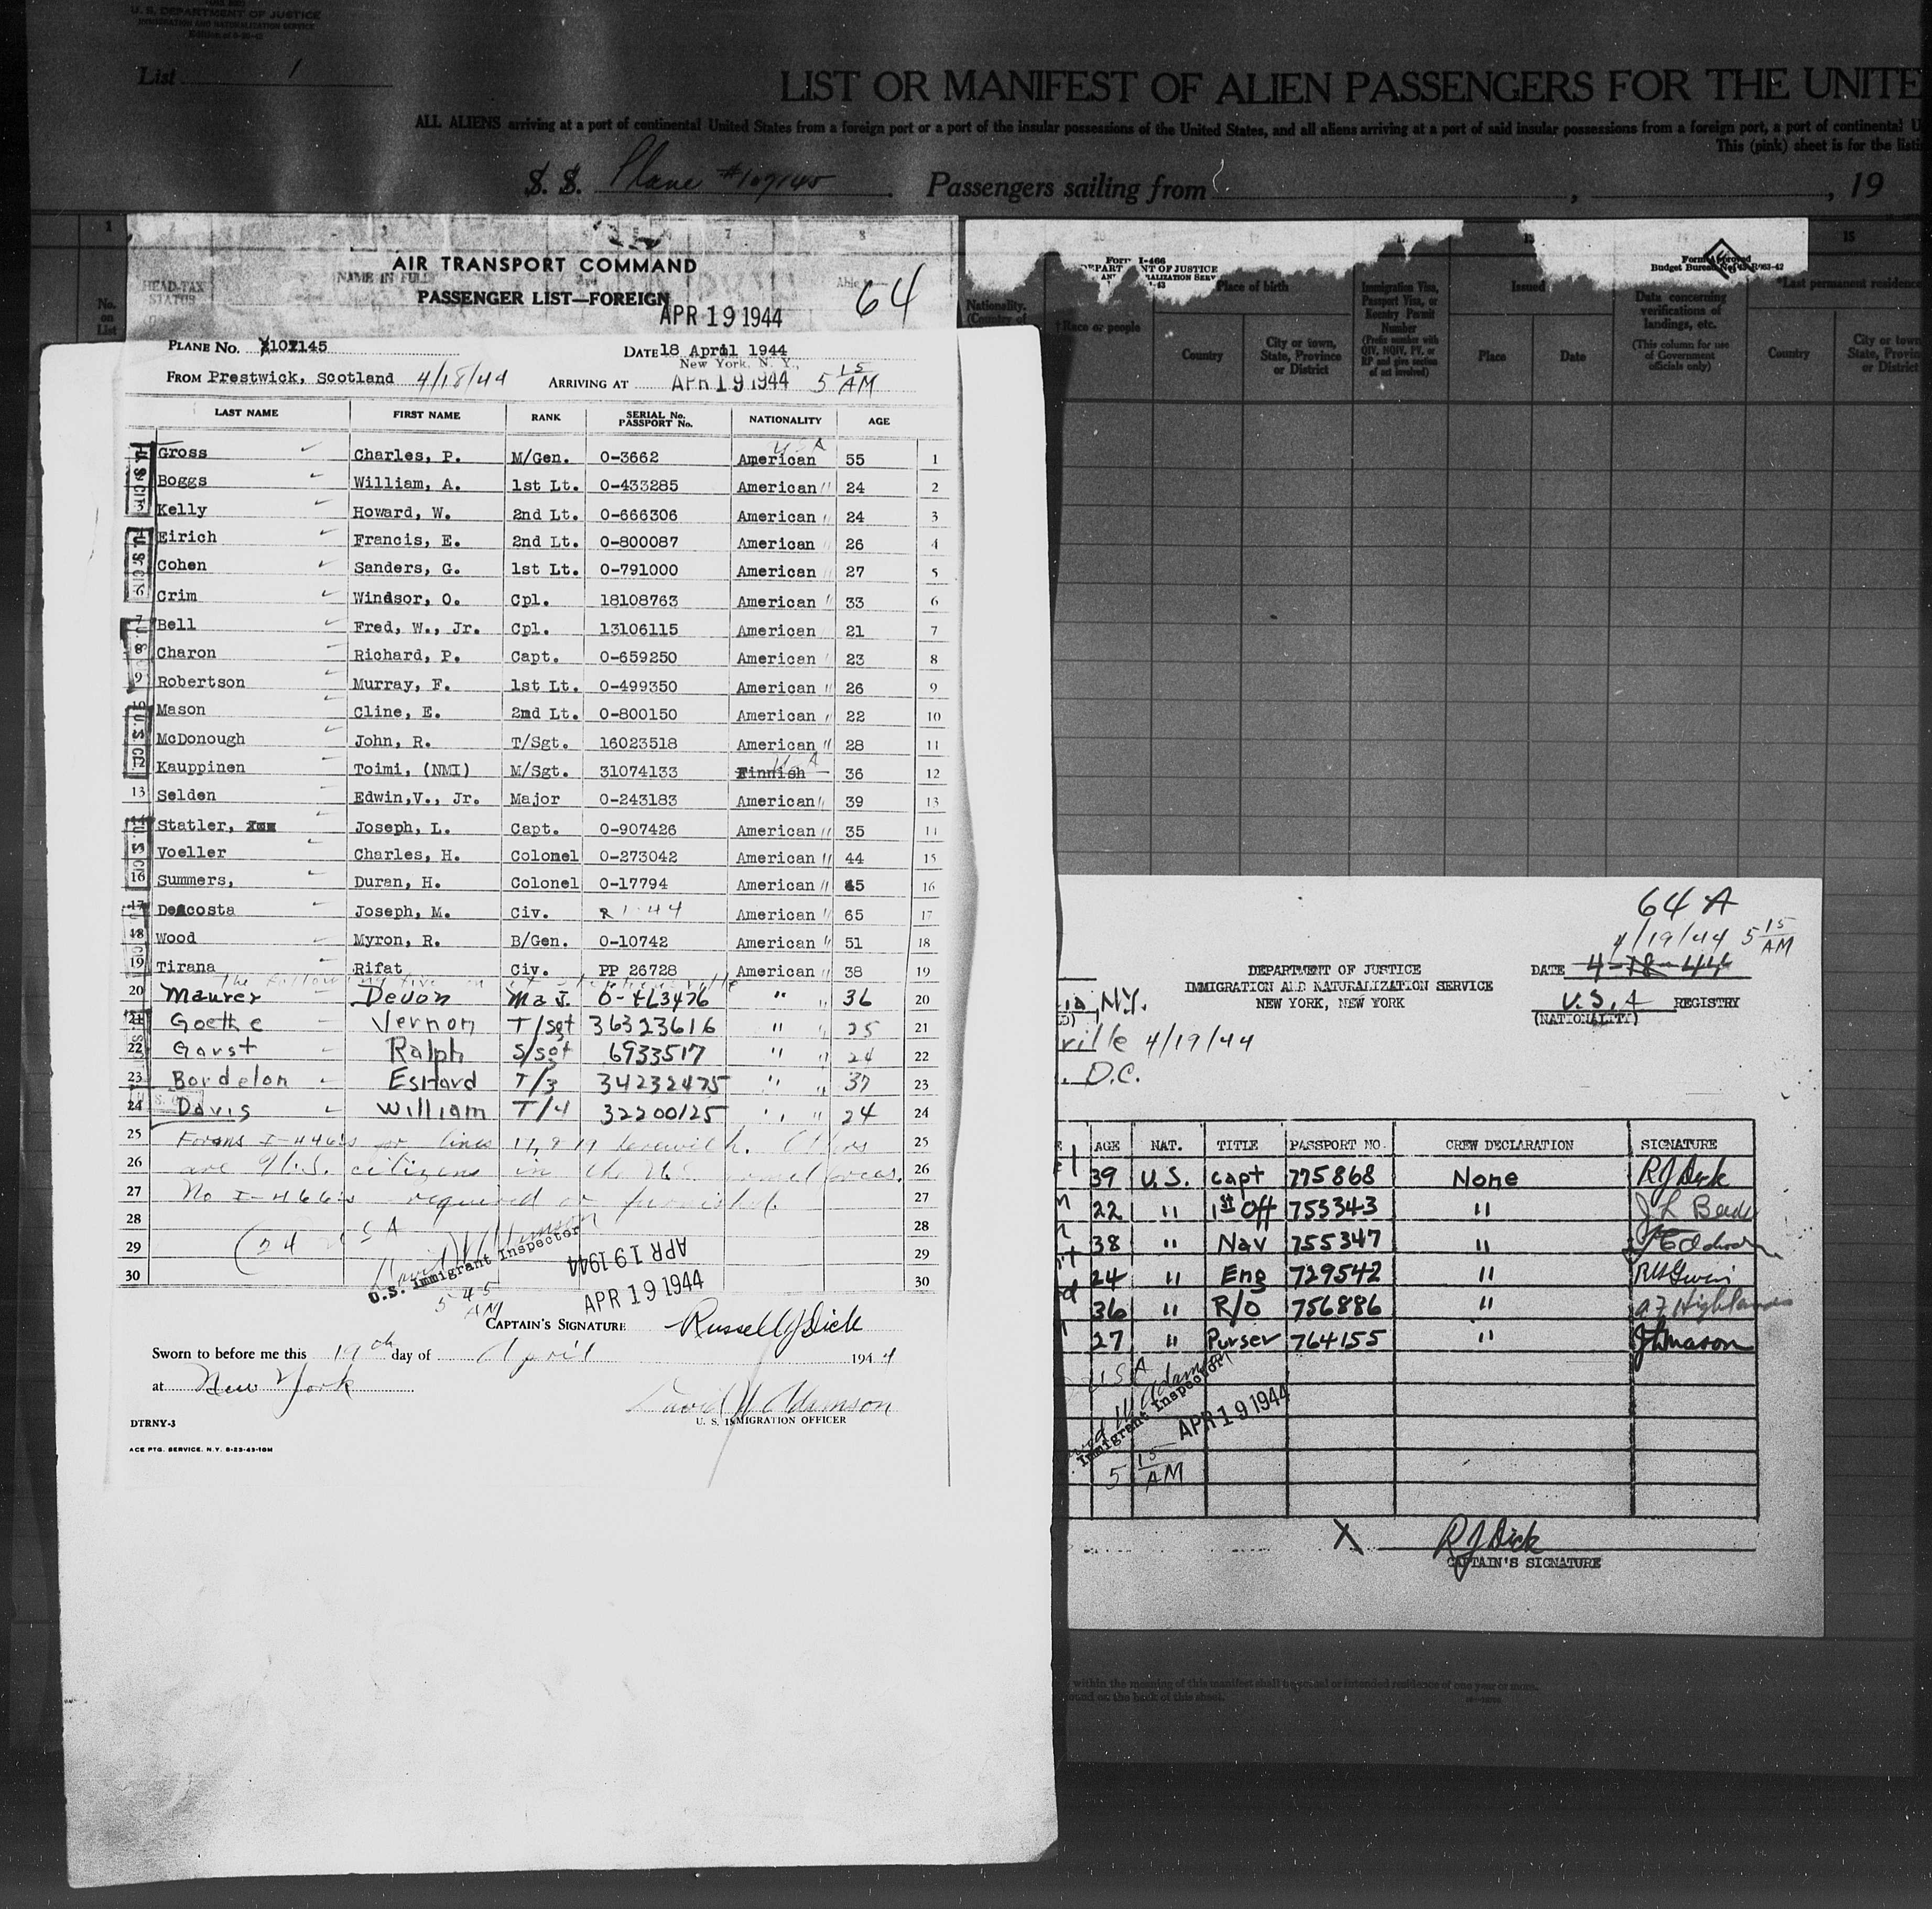 U. S. DEPARTMENT OF JUSTICE
IMMIGRATION AND NATURALIZATION SERVICE
List 1
LIST OR MANIFEST OF ALIEN PASSENGERS FOR THE UNITE
ALL ALIENS arriving at a port of continental United States from a foreign port or a port of the insular possessions of the United States, and all aliens arriving at a port of said insular possessions from a foreign port, a port of continental U
This (pink) sheet is for the listi
S. S. Plane #107145 Passengers sailing from , , 19
AIR TRANSPORT COMMAND
PASSENGER LIST—FOREIGN
APR 19 1944
64
HEAD-TAX STATUS
NAME IN FULL
PLANE No. 107145 DATE 18 April 1944
New York, N. Y.,
FROM Prestwick, Scotland 4/18/44 ARRIVING AT APR 19 1944 5 15 AM
LAST NAME FIRST NAME RANK SERIAL No. PASSPORT No. NATIONALITY AGE
USA
Gross Charles, P. M/Gen. 0-3662 American 55 1
Boggs William, A. 1st Lt. 0-433285 American " 24 2
Kelly Howard, W. 2nd Lt. 0-666306 American " 24 3
Eirich Francis, E. 2nd Lt. 0-800087 American " 26 4
Cohen Sanders, G. 1st Lt. 0-791000 American 27 5
Crim Windsor, O. Cpl. 18108763 American " 33 6
Bell Fred, W., Jr. Cpl. 13106115 American 21 7
Charon Richard, P. Capt. 0-659250 American " 23 8
Robertson Murray, F. 1st Lt. 0-499350 American " 26 9
Mason Cline, E. 2nd Lt. 0-800150 American " 22 10
McDonough John, R. T/Sgt. 16023518 American " 28 11
Kauppinen Toimi, (NMI) M/Sgt. 31074133 Finnish USA 36 12
13 Selden Edwin,V., Jr. Major 0-243183 American " 39 13
14 Statler, Joseph, L. Capt. 0-907426 American " 35 14
Voeller Charles, H. Colonel 0-273042 American " 44 15
16 Summers, Duran, H. Colonel 0-17794 American " 45 16
17 DeAcosta Joseph, M. Civ. American " 65 17
18 Wood Myron, R. B/Gen. 0-10742 American " 51 18
19 Tirana Rifat Civ. PP 26728 American " 38 19
the following five on at Stephenville
20 Maurer Devon Maj. 36 20
21 Goethe Vernon T/sgt 36323616 " " 25 21
22 Garst Ralph S/sgt 6933517 " " 24 22
23 Bordelon T/3 34232475 " " 37 23
24 Davis William T/4 32200125 " " 24 24
25 Forms I-446's for lines 25
26 are U.S. citizens in the U.S. 26
27 No I-466's required or furnished. 27
28 28
29 (24 USA 29
30 30
U.S. Immigrant Inspector
APR 19 1944
APR 19 1944
5 45 AM
CAPTAIN'S SIGNATURE Russell J Dick
Sworn to before me this 19th day of April 1944
at New York
David W Adamson
U. S. IMMIGRATION OFFICER
DTRNY-3
ACE PTG. SERVICE. N.Y. 8-23-43-10M
Nationality. (Country of
†Race or people
Place of birth
Country
City or town, State, Province or District
Immigration Visa, Passport Visa, or Reentry Permit Number
(Prefix number with QIV, NQIV, PV, or RP and give section of act involved)
Issued
Place Date
Data concerning verifications of landings, etc.
(This column for use of Government officials only)
*Last permanent residence
Country
City or town, State, Provin or District
64 A
4/19/44 5 15 AM
DEPARTMENT OF JUSTICE
IMMIGRATION AND NATURALIZATION SERVICE
NEW YORK, NEW YORK
DATE 4-18-44
U.S.A REGISTRY
(NATIONALITY)
N.Y.
ville 4/19/44
D.C.
AGE NAT. TITLE PASSPORT NO. CREW DECLARATION SIGNATURE
39 U.S. Capt 775868 None RJ Dick
22 " 1st Off 755343 "
38 " Nav 755347 "
24 " Eng 729542 "
36 " R/O 756886 " Highlands
27 " Purser 764155 " Mason
USA
Immigrant Inspector
APR 19 1944
5 15 AM
X RJ Dick
CAPTAIN'S SIGNATURE
within the meaning of this manifest shall be actual or intended residence of one year or more.